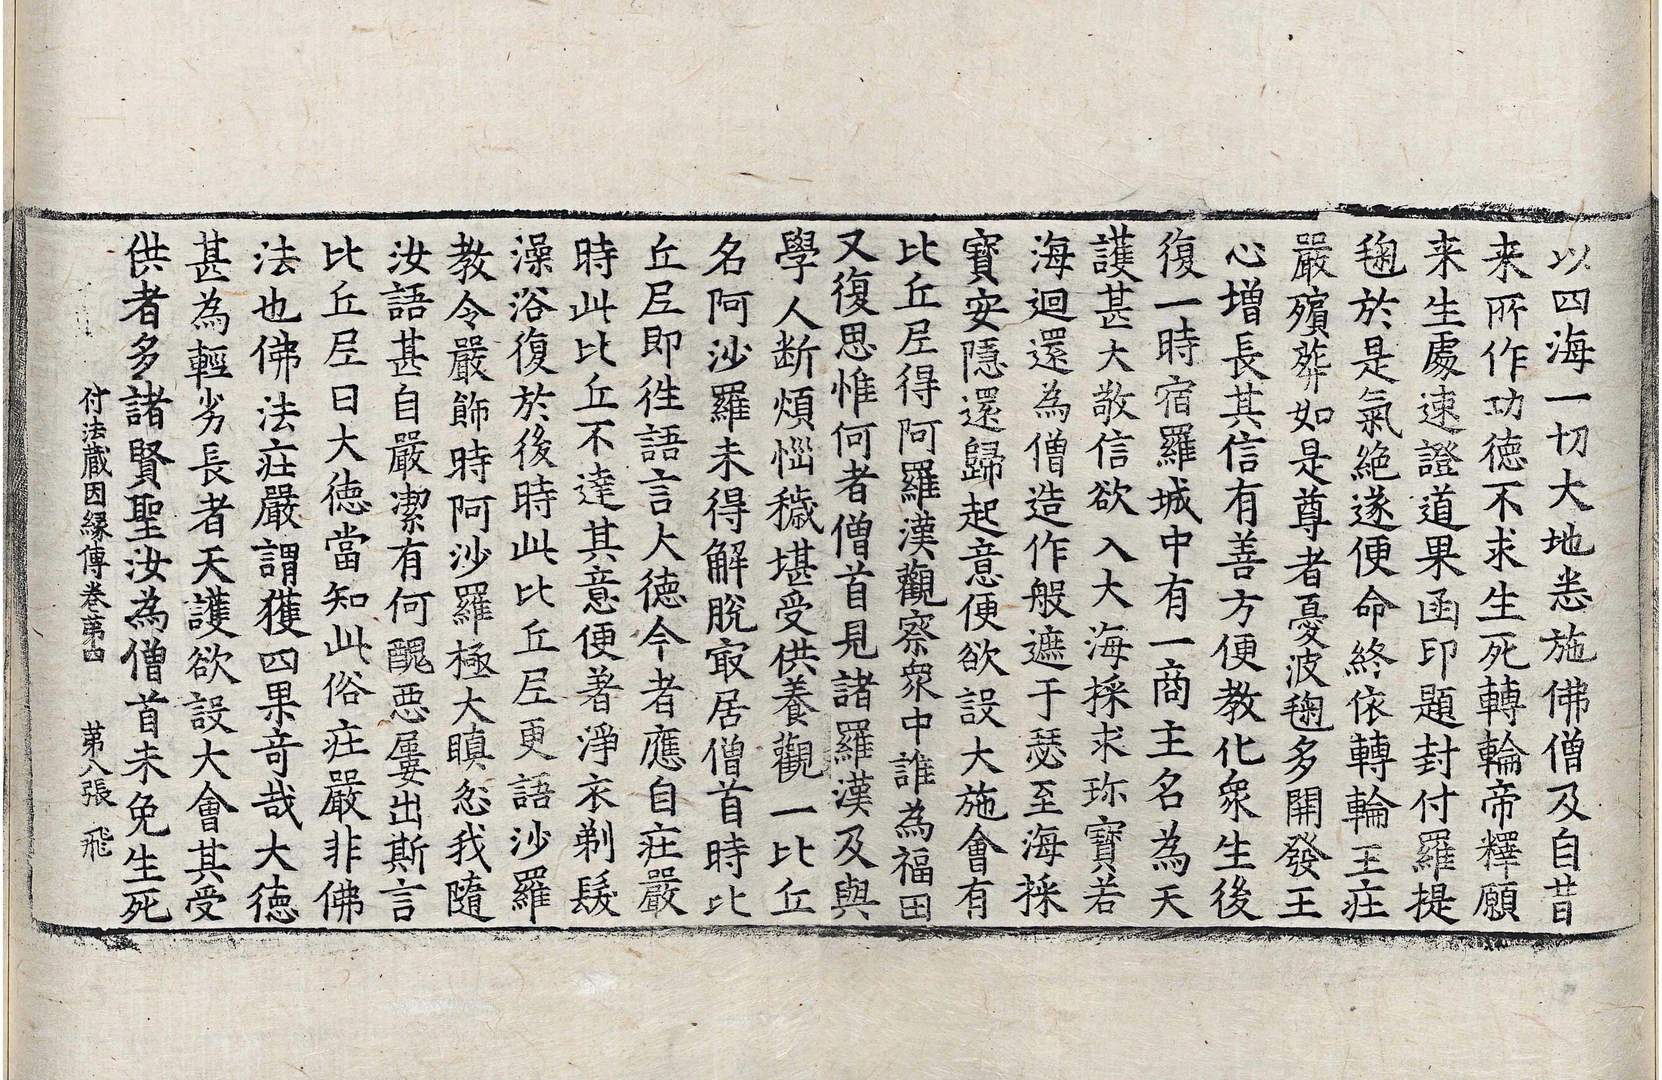 以四海一切大地悉施佛僧及自昔
来所作功德不求生死轉輪帝釋願
来生處速證道果函印題封付羅提
毱於是氣絶遂便命終依轉輪王莊
嚴殯葬如是尊者憂波毱多開發王
心增長其信有善方便教化衆生後
復一時宿羅城中有一商主名為天
護甚大敬信欲入大海採求珎寶若
海迴還為僧造作般遮于瑟至海採
寶安隱還歸起意便欲設大施會有
比丘尼得阿羅漢觀察衆中誰為福田
又復思惟何者僧首見諸羅漢及與
學人断煩惱穢堪受供養觀一比丘
名阿沙羅未得解脫㝡居僧首時比
丘尼即徃語言大德今者應自莊嚴
時此比丘不達其意便著淨衣剃髮
澡浴復於後時此比丘尼更語沙羅
教令嚴飾時阿沙羅極大瞋忿我隨
汝語甚自嚴潔有何醜惡屢出斯言
比丘尼曰大德當知此俗莊嚴非佛
法也佛法莊嚴謂獲四果竒哉大德
甚為輕劣長者天護欲設大會其受
供者多諸賢聖汝為僧首未免生死
付法蔵因縁傳卷苐四 苐八張 飛